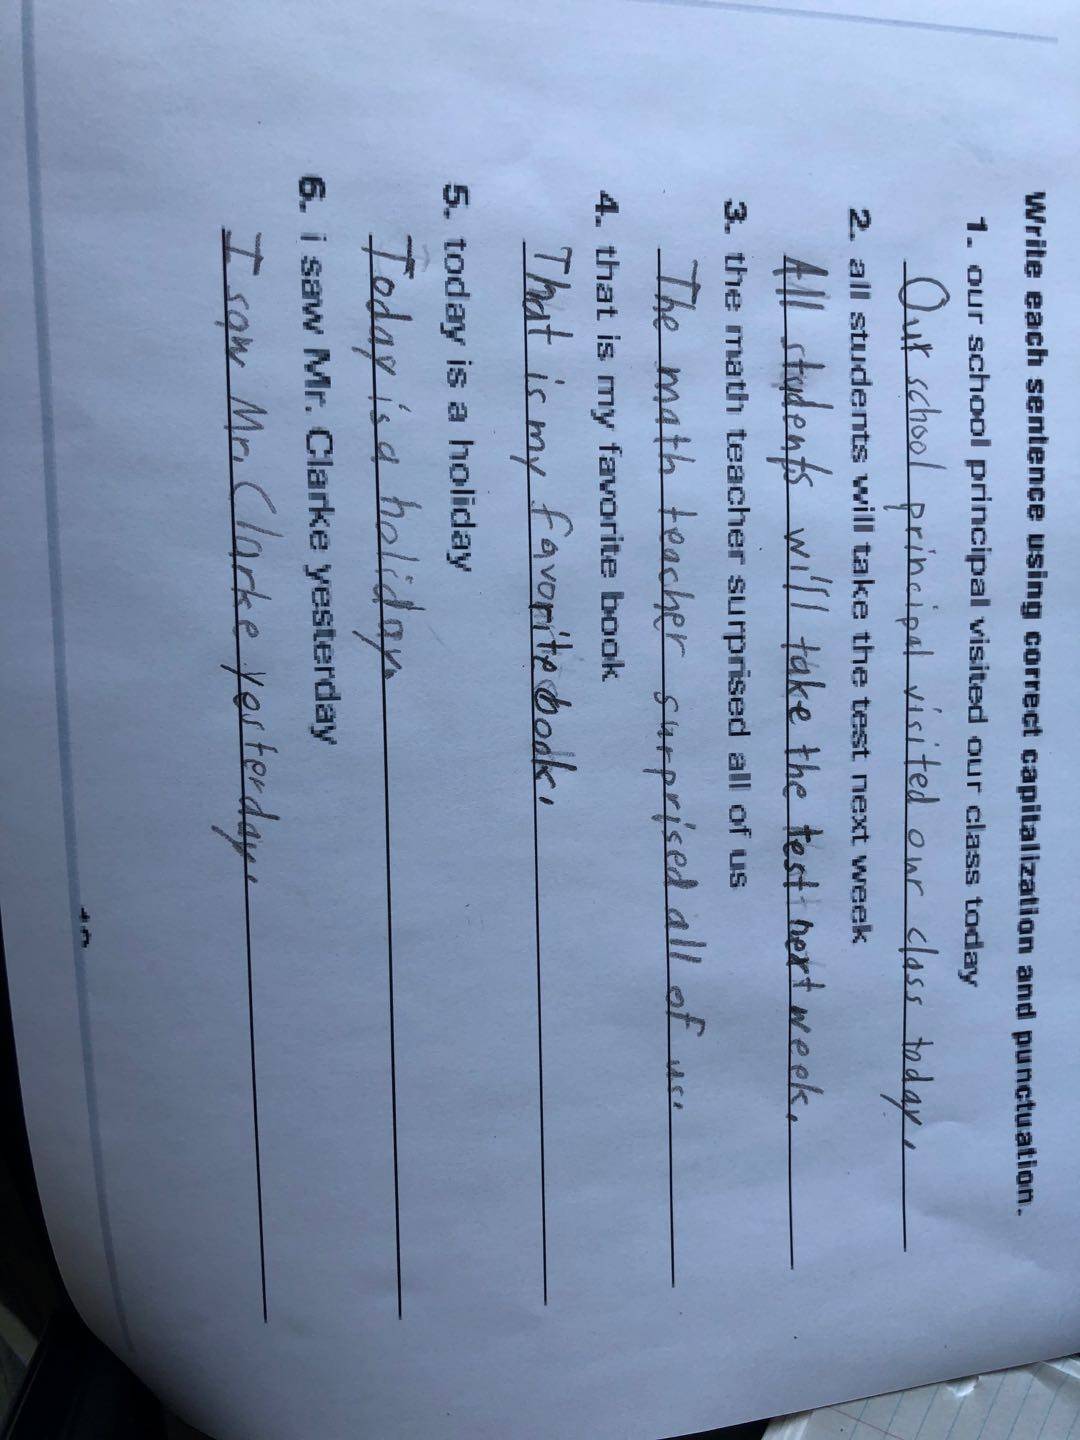 Write each sentence using correct capitalization and punctuation.
1. our school principal visited our class today
Our school principal visited our class today.
2. all students will take the test next week
All students will take the test next week.
3. the math teacher surprised all of us
The math teacher surprised all of us.
4. that is my favorite book
That is my favorite book.
5. today is a holiday
Today is a holiday.
6. i saw Mr. Clarke yesterday
I saw Mr. Clarke yesterday.